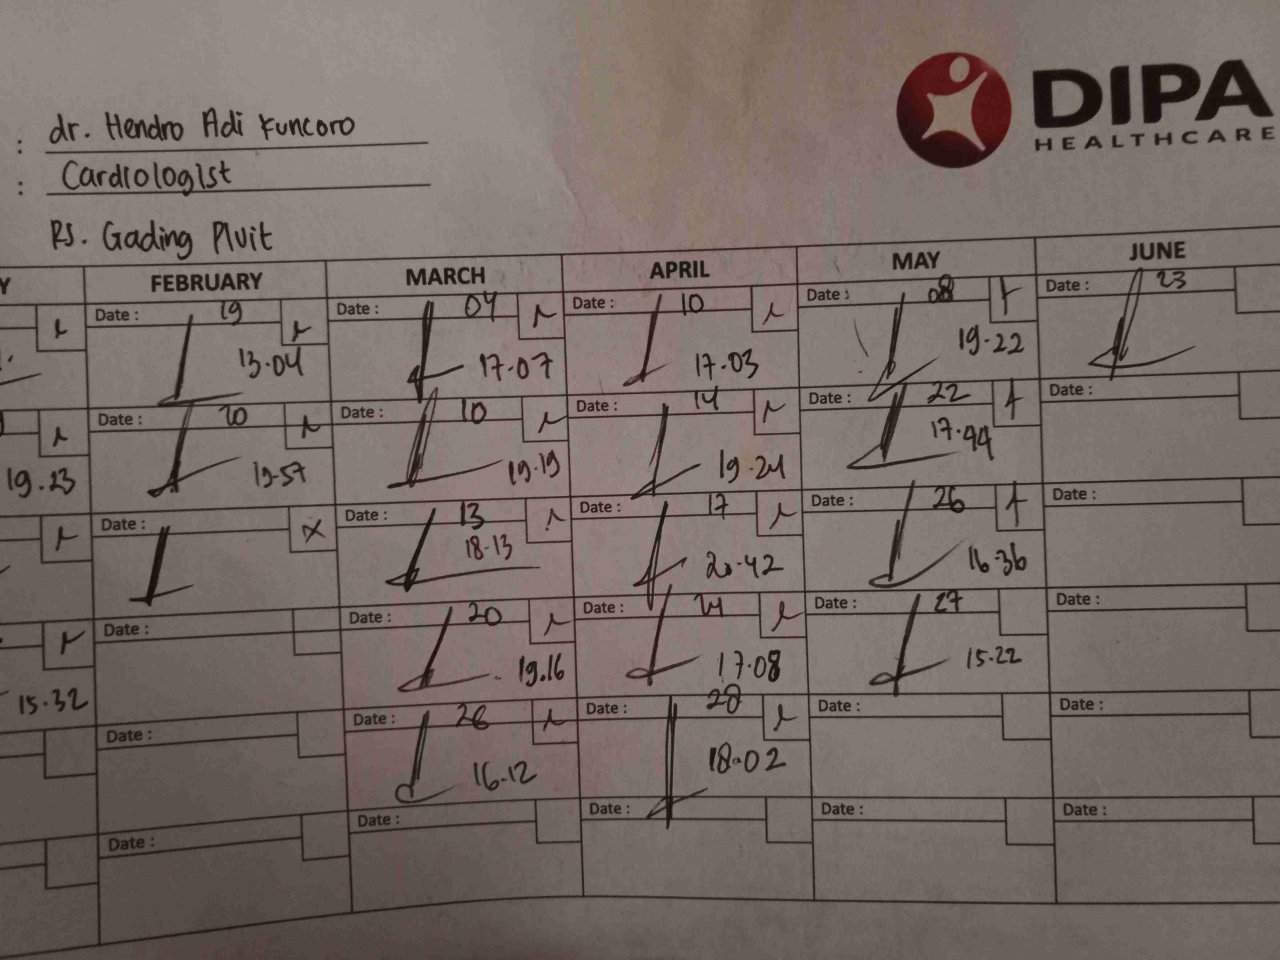 DIPA
HEALTHCARE
: dr. Hendro Adi Kuncoro
: Cardiologist
RS. Gading Pluit
Y FEBRUARY MARCH APRIL MAY JUNE
Date : 19 Date : 04 Date : 10 Date : 08 Date : 23
13.04 17.07 17.03 19.22
Date : 20 Date : 10 Date : 14 Date : 22 Date :
19.23 19.57 19.19 19.24 17.44
Date : x Date : 13 Date : 17 Date : 26 Date :
18.13 20.42 16.36
Date : Date : 20 Date : 24 Date : 27 Date :
15.32 19.16 17.08 15.22
Date : Date : 26 Date : 28 Date : Date :
16.12 18.02
Date : Date : Date : Date : Date :